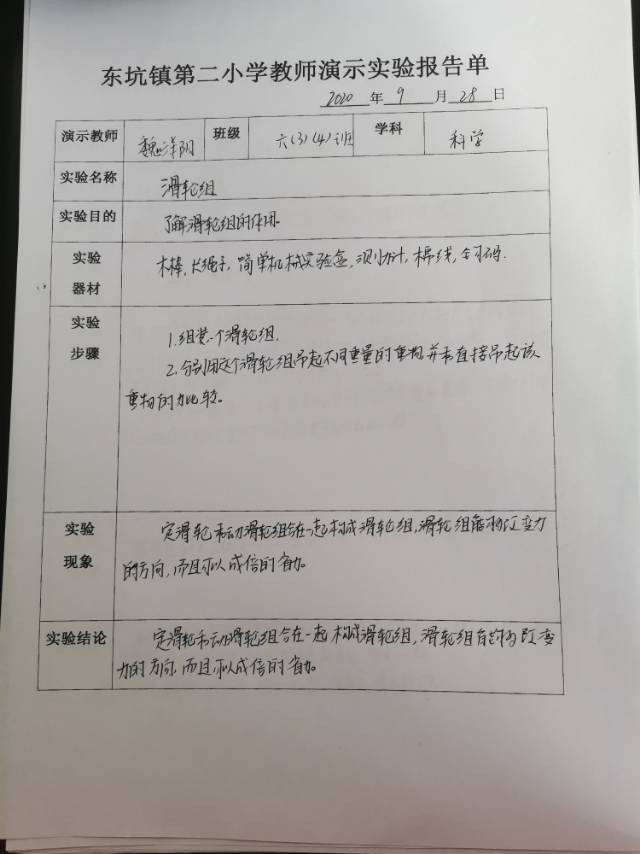 东坑镇第二小学教师演示实验报告单
2020 年 9 月 28 日
演示教师 魏洋阴 班级 六(3)(4)班 学科 科学
实验名称 滑轮组
实验目的 了解滑轮组的作用.
实验器材 木棒,长绳子,简单机械实验盒,测力计,棉线,钩码.
实验步骤
1.组装一个滑轮组.
2.分别用这个滑轮组吊起不同重量的重物,并和直接吊起该
重物的力比较。
实验现象
定滑轮和动滑轮组合在一起构成滑轮组,滑轮组能改变力
的方向,而且可以成倍的省力。
实验结论
定滑轮和动滑轮组合在一起构成滑轮组,滑轮组改变
力的方向.而且可以成倍的省力。